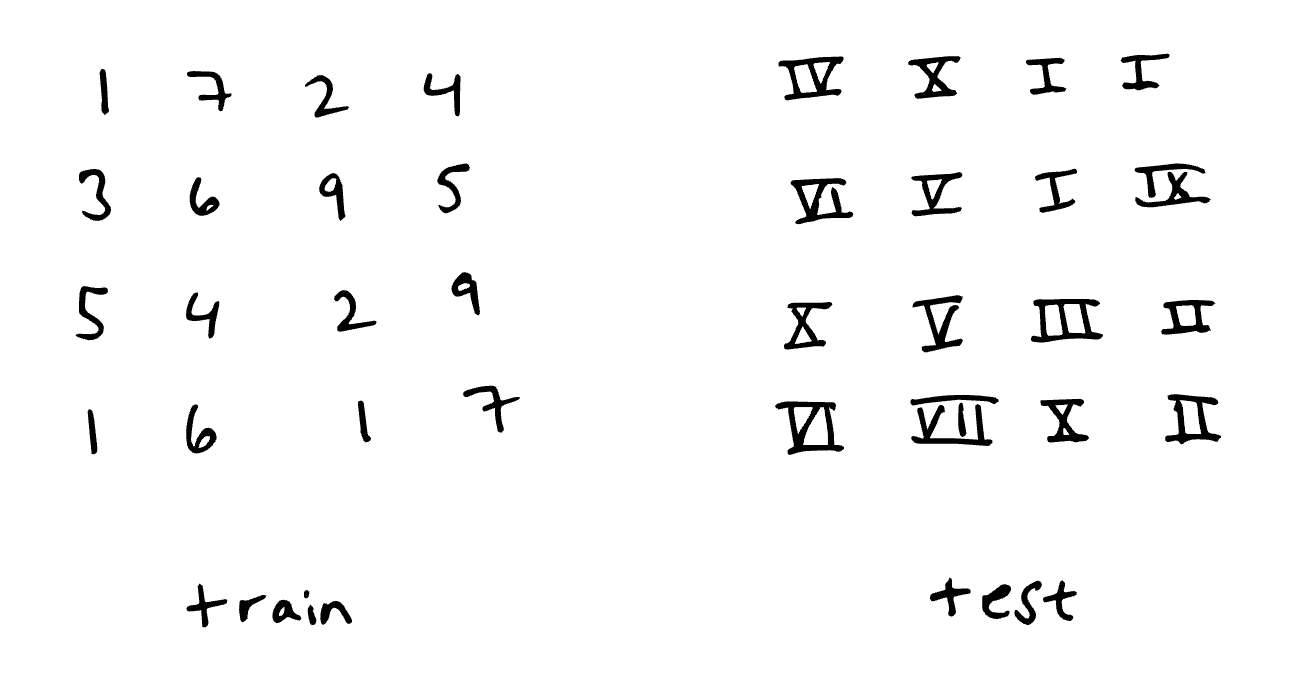 1 7 2 4
3 6 9 5
5 4 2 9
1 6 1 7
train
IV X I I
VI V I IX
X V III II
VI VII X II
test